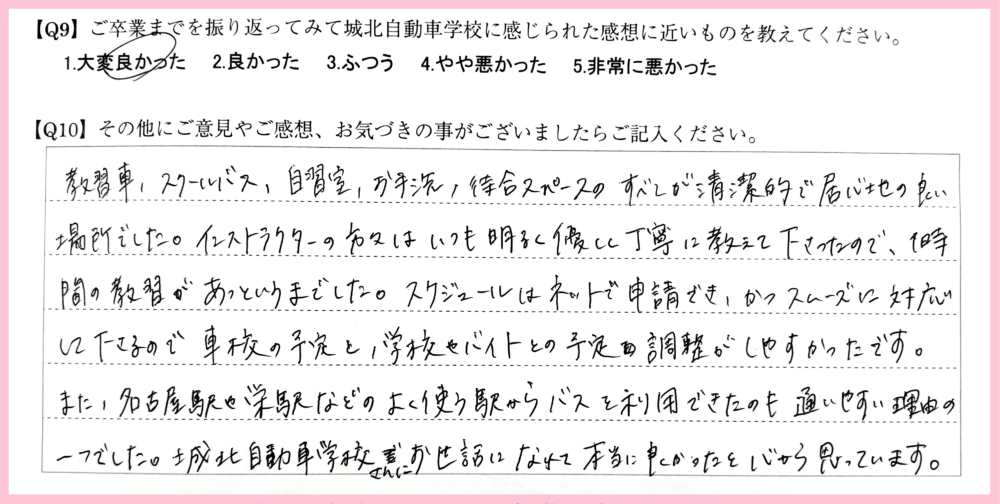 【Q9】ご卒業までを振り返ってみて城北自動車学校に感じられた感想に近いものを教えてください。
1.大変良かった　2.良かった　3.ふつう　4.やや悪かった　5.非常に悪かった
【Q10】その他にご意見やご感想、お気づきの事がございましたらご記入ください。
教習車，スクールバス，自習室，お手洗，待合スペースの すべてが清潔的で居心地の良い
場所でした。インストラクターの方々は いつも明るく優しく丁寧に教えて下さったので、1時
間の教習が あっというまでした。スケジュールはネットで申請でき，かつスムーズに対応
して下さるので 車校の予定と，学校やバイトとの予定の調整が しやすかったです。
また，名古屋駅や栄駅などの よく使う駅からバスを利用できたのも 通いやすい理由の
一つでした。城北自動車学校さんにお世話になれて 本当に良かったと 心から 思っています。